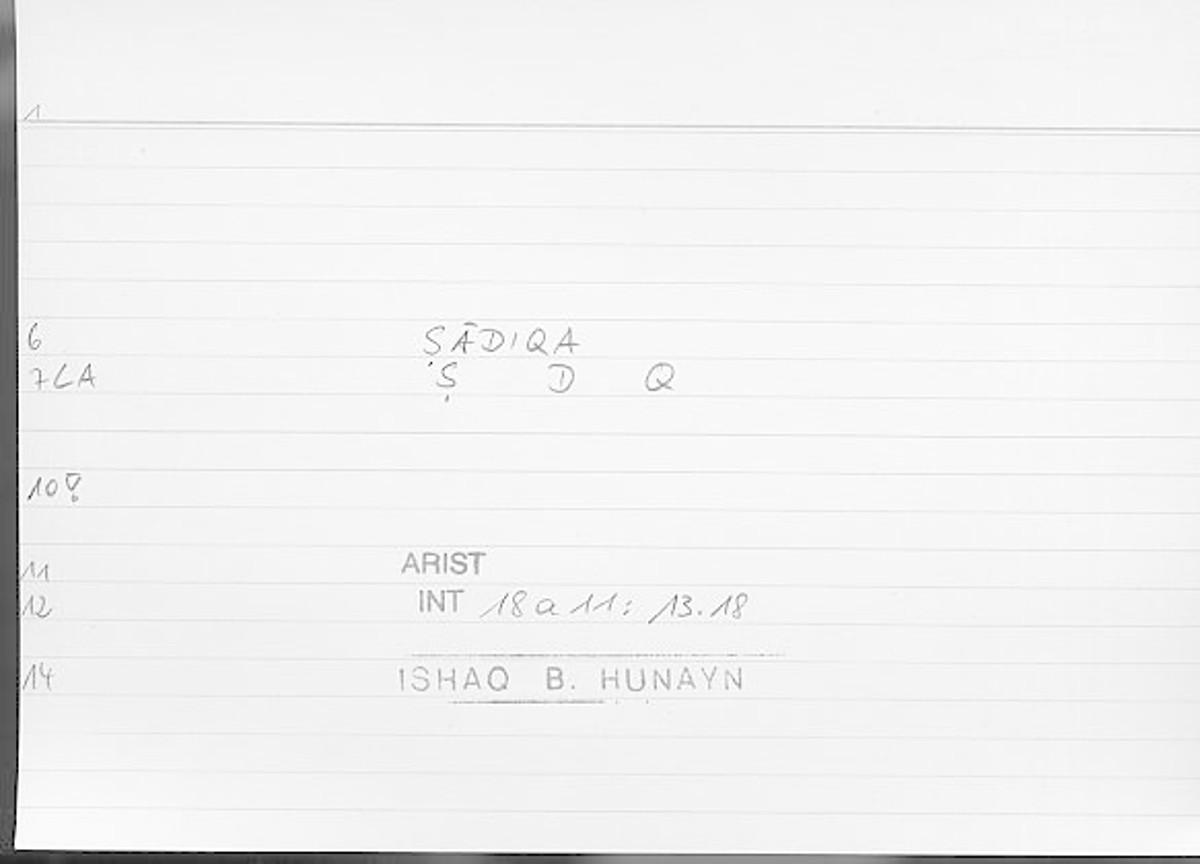 1
6 ṢĀDIQA
7LA Ṣ D Q
10
11 ARIST
12 INT 18a11: 13.18
14 ISHAQ B. HUNAYN